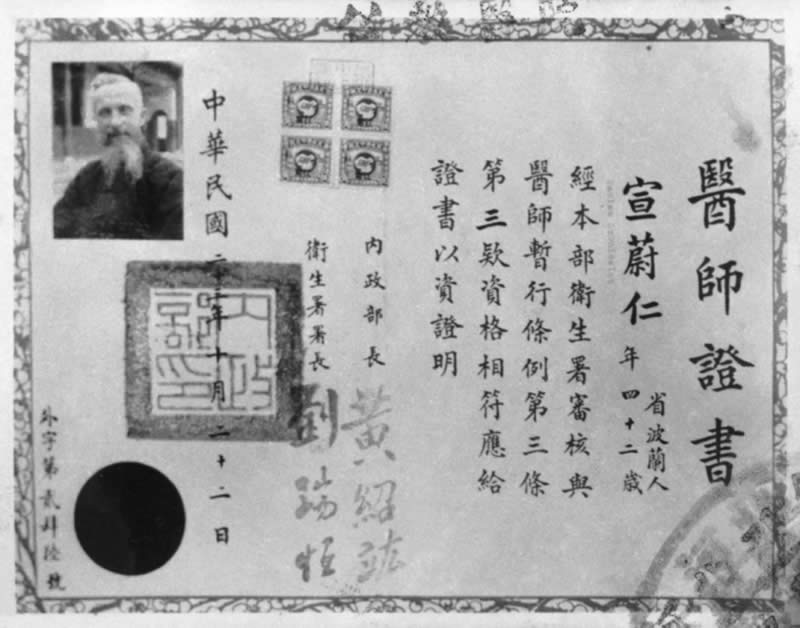 醫師證書
宣蔚仁
省波蘭人
年四十二歲
經本部衛生署審核與
醫師暫行條例第三條
第三欵資格相符應給
證書以資證明
內政部長 黃紹竑
衛生署署長 劉瑞恒
內政部印
中華民國二十三年十月二十二日
外字第貳肆陸號